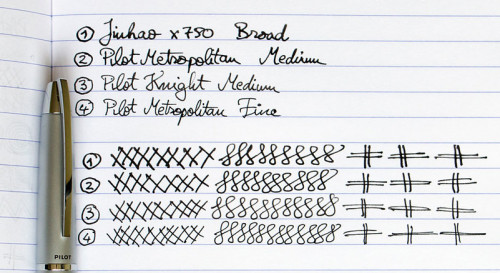 ① Jinhao x750 Broad
② Pilot Metropolitan Medium
③ Pilot Knight Medium
④ Pilot Metropolitan Fine
①
②
③
④
PILOT